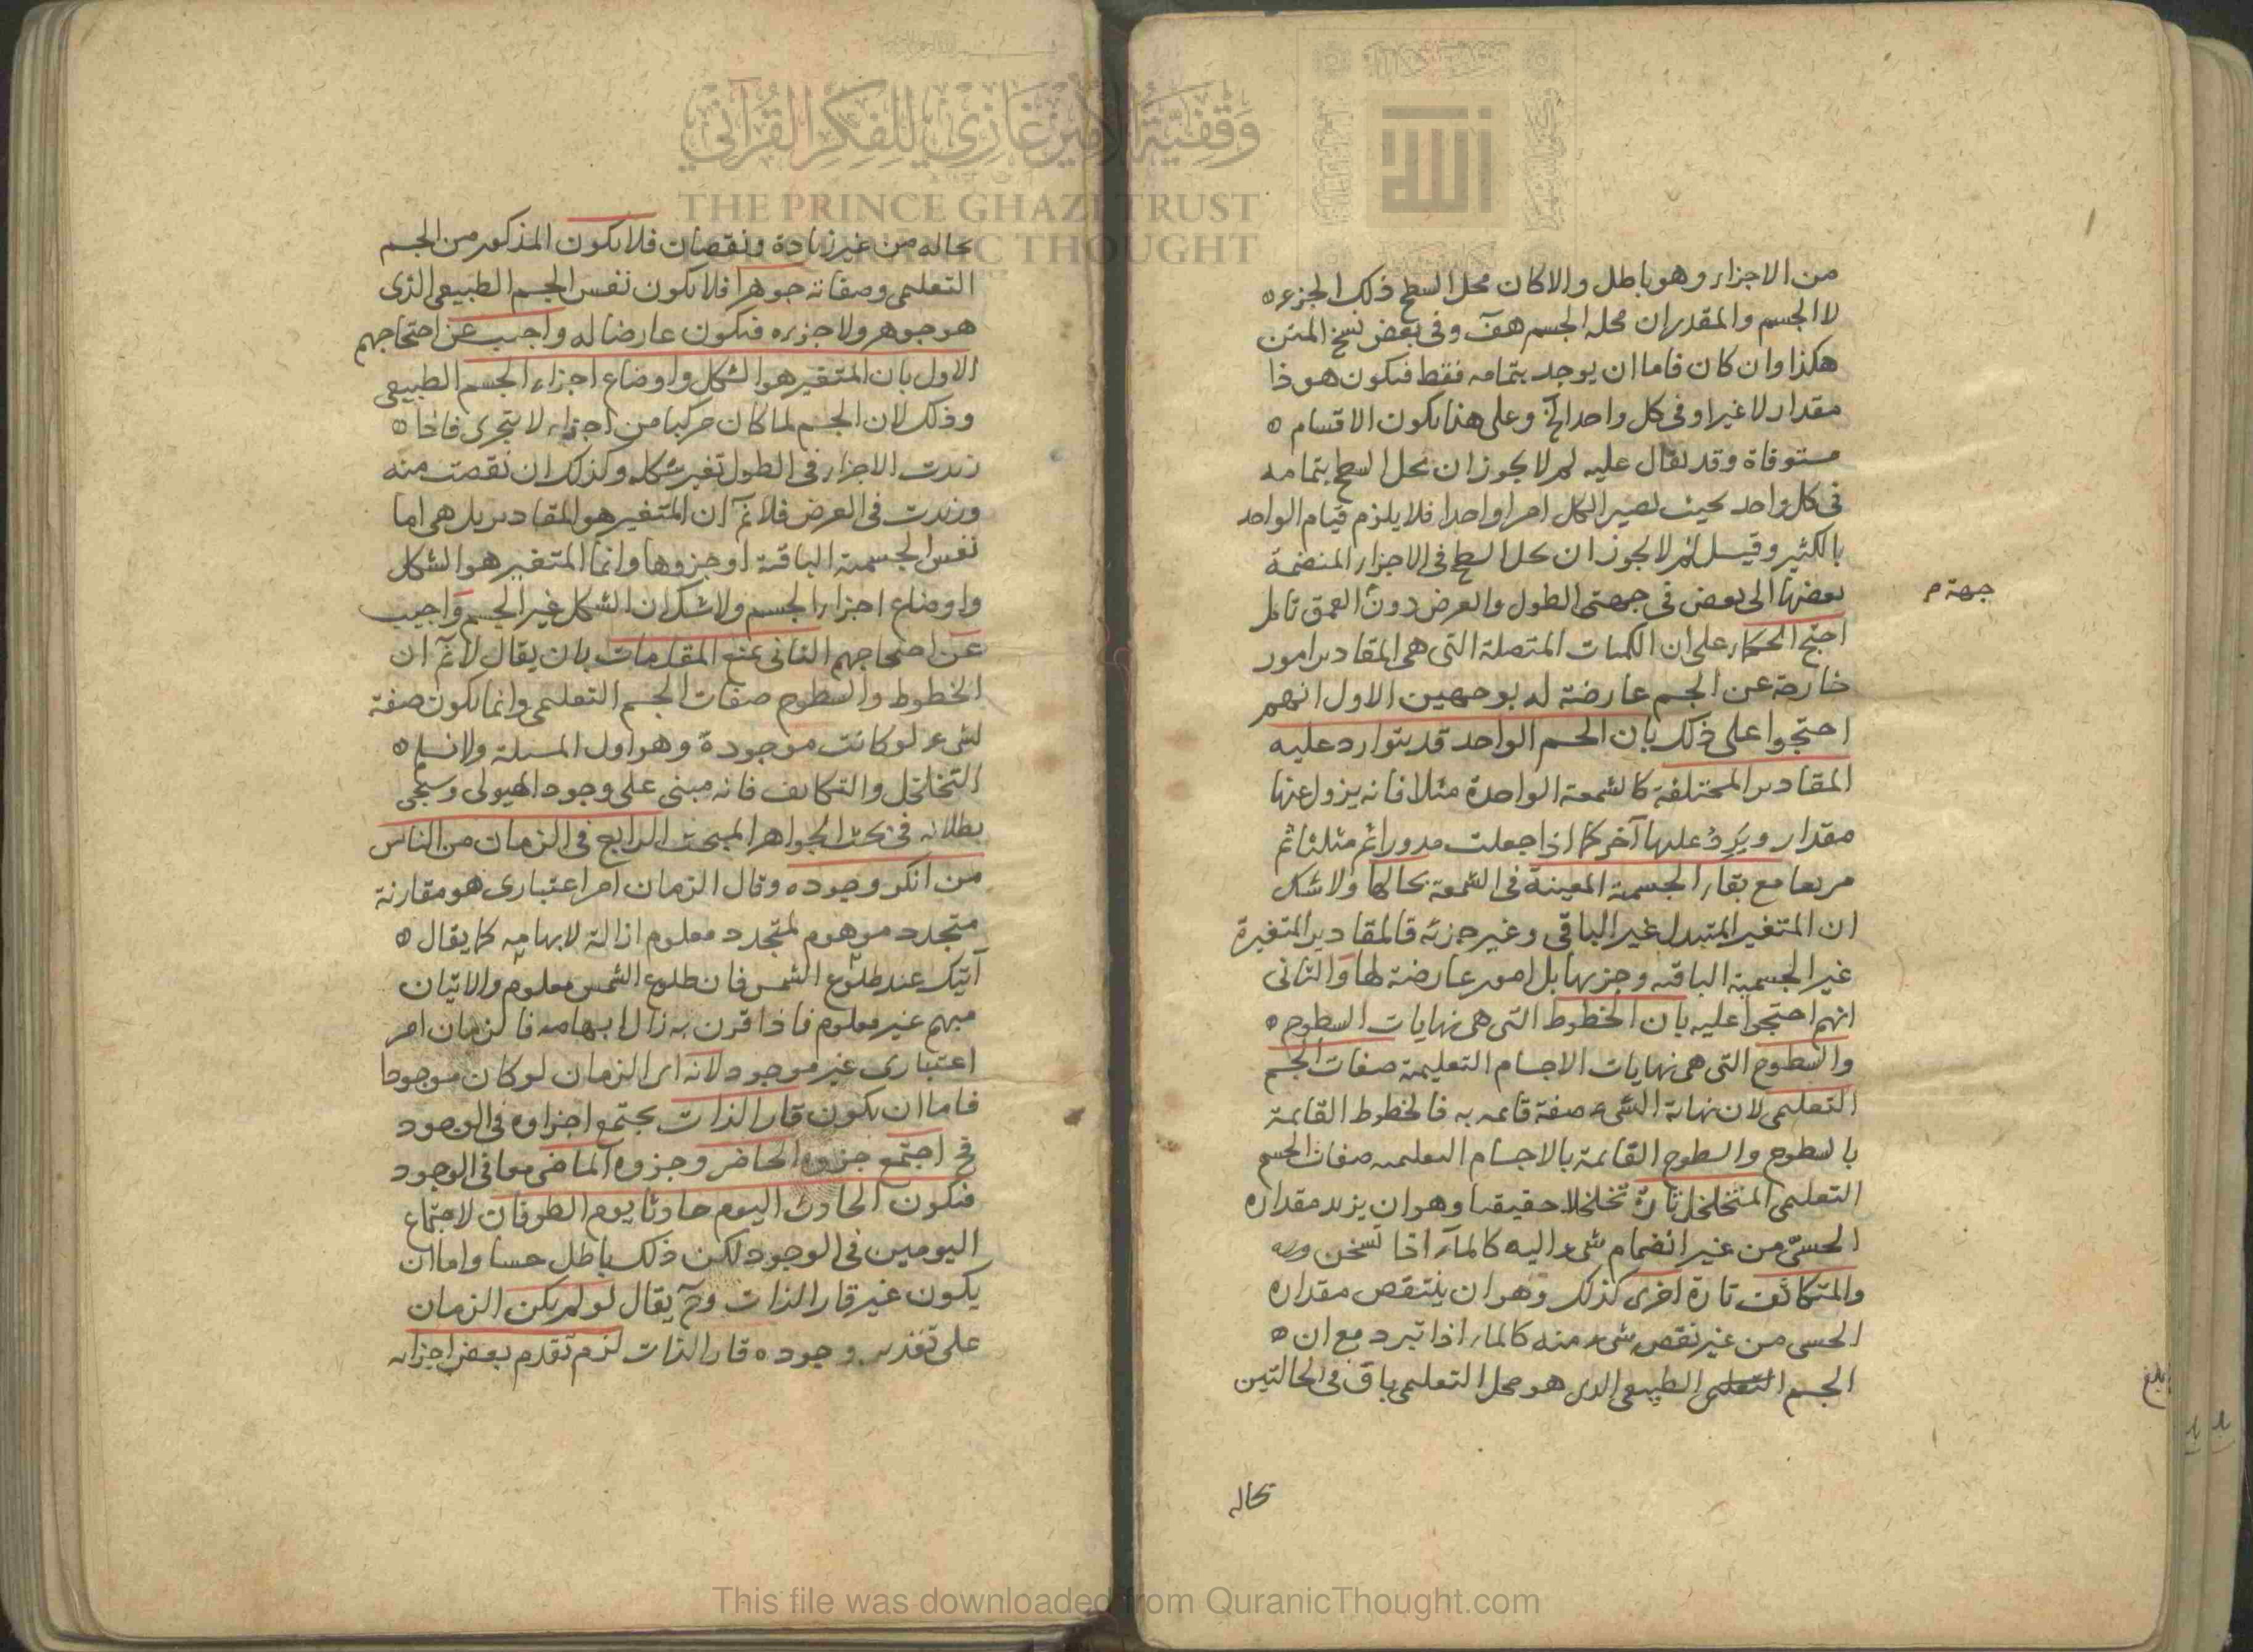 من الاجزاء وهو باطل والا كان محل السطح ذلك الجزء ه
لا الجسم والمقدر ان محله الجسم هف وفى بعض نسخ المتن
هكذا وان كان فاما ان يوجد بتمامه فقط فيكون هو ذا
مقدار لا غير او فى كل واحد الخ وعلى هذا يكون الاقسام ه
مستوفاة وقد يقال عليه لم لا يجوز ان يحل السطح بتمامه
فى كل واحد بحيث يصير الكل امرا واحدا فلا يلزم قيام الواحد
بالكثير وقيل لم لا يجوز ان يحل السطح فى الاجزاء المنضمة
بعضها الى بعض فى جهتى الطول والعرض دون العمق تامل
جهة م
احتج الحكماء على ان الكميات المتصلة التى هى المقادير امور
خارجة عن الجسم عارضة له بوجهين الاول انهم
احتجوا على ذلك بان الجسم الواحد قد يتوارد عليه
المقادير المختلفة كالشمعة الواحدة مثلا فانه يزول عنها
مقدار ويرد عليها آخر كما اذا جعلت مدورا ثم مثلثا ثم
مربعا مع بقاء الجسمية المعينة فى الشمعة بحالها ولا شك
ان المتغير المتبدل غير الباقى وغير جزئه فالمقادير المتغيرة
غير الجسمية الباقية وجزئها بل امور عارضة لها والثانى
انهم احتجوا عليه بان الخطوط التى هى نهايات السطوح ه
والسطوح التى هى نهايات الاجسام التعليمية صفات الجسم
التعليمى لان نهاية الشىء صفة قائمه به فالخطوط القائمة
بالسطوح والسطوح القائمة بالاجسام التعليميه صفات الجسم
التعليمى المتخلخل تارة تخلخلا حقيقيا وهو ان يزيد مقداره
الحسى من غير انضمام شىء اليه كالماء اذا تسخن
والمتكاثف تارة اخرى كذلك وهو ان ينتقص مقداره
الحسى من غير نقص شىء منه كالماء اذا تبرد مع ان ه
الجسم التعليمى الطبيعى الذى هو محل التعليمى باق فى الحالتين
بحاله
بلغ
بحاله من غير زيادة ونقصان فلا يكون المذكور من الجسم
التعليمى وصفاته جوهرا فلا يكون نفس الجسم الطبيعى الذى
هو جوهر ولا جزءه فيكون عارضا له واجيب عن احتجاجهم
الاول بان المتغير هو الشكل واوضاع اجزاء الجسم الطبيعى
وذلك لان الجسم لما كان مركبا من اجزاء لا تتجزى فاذا ه
زيدت الاجزاء فى الطول تغير شكله وكذلك ان نقصت منه
وزيدت فى العرض فلا نم ان المتغير هو المقادير بل هى اما
نفس الجسمية الباقية او جزوها وانما المتغير هو الشكل
واوضاع اجزاء الجسم ولا شك ان الشكل غير الجسم واجيب
عن احتجاجهم الثانى بمنع المقدمات بان يقال لا نم ان
الخطوط والسطوح صفات الجسم التعليمى وانما يكون صفة
لشىء لو كانت موجودة وهو اول المسئلة ولا نسلم ه
التخلخل والتكاثف فانه مبنى على وجود الهيولى وسيجى
بطلانه فى بحث الجواهر المبحث الرابع فى الزمان من الناس
من انكر وجوده وقال الزمان امر اعتبارى هو مقارنة
متجدد موهوم لمتجدد معلوم ازالة لابهامه كما يقال ه
آتيك عند طلوع الشمس فان طلوع الشمس معلوم والاتيان
مبهم غير معلوم فاذا قرن به زال ابهامه فالزمان امر
اعتبارى غير موجود لانه اى الزمان لو كان موجودا
فاما ان يكون قار الذات يجتمع اجزاوه فى الوجود
فح اجتمع جزوه الحاضر وجزوه الماضى معا فى الوجود
فيكون الحادث اليوم حادثا يوم الطوفان لاجتماع
اليومين فى الوجود لكن ذلك باطل حسا واما ان
يكون غير قار الذات وح يقال لو لم يكن الزمان
على تقدير وجوده قار الذات لزم تقدم بعض اجزائه
وقفية الأمير غازي للفكر القرآني
THE PRINCE GHAZI TRUST
THOUGHT
This file was downloaded from QuranicThought.com